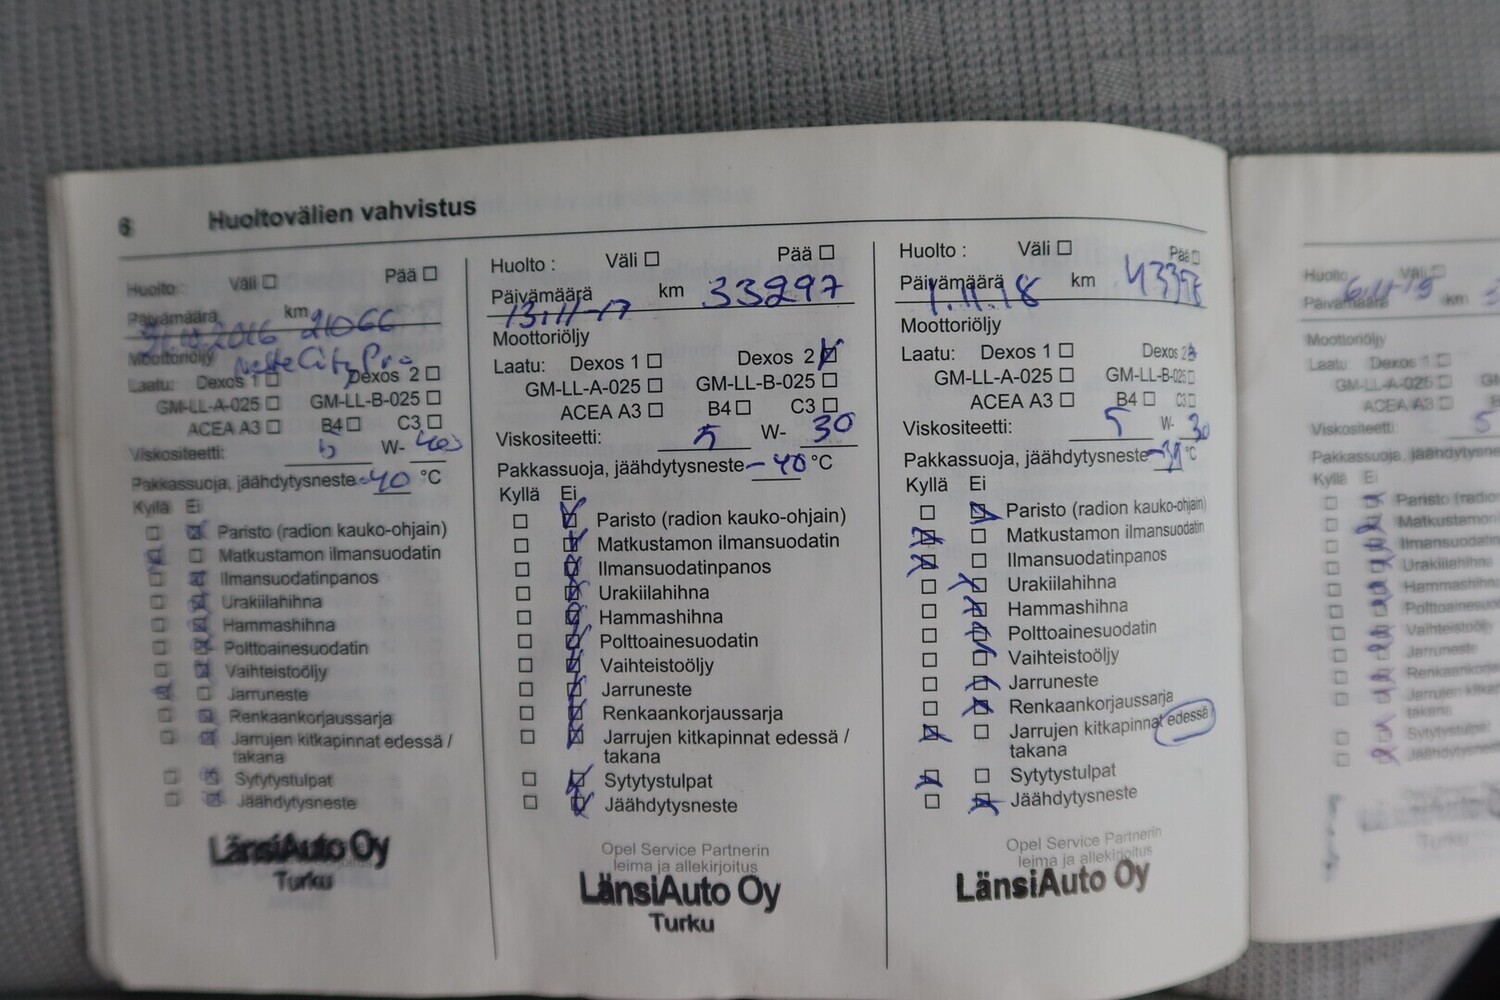 6 Huoltovälien vahvistus
Huolto: Väli Pää
Päivämäärä km 21066
Moottoriöljy Neste City Pro
Laatu: Dexos 1 Dexos 2
GM-LL-A-025 GM-LL-B-025
ACEA A3 B4 C3
Viskositeetti: 5 W- 40
Pakkassuoja, jäähdytysneste -40 °C
Kyllä Ei
Paristo (radion kauko-ohjain)
Matkustamon ilmansuodatin
Ilmansuodatinpanos
Urakiilahihna
Hammashihna
Polttoainesuodatin
Vaihteistoöljy
Jarruneste
Renkaankorjaussarja
Jarrujen kitkapinnat edessä /
takana
Sytytystulpat
Jäähdytysneste
LänsiAuto Oy
Turku
Huolto : Väli Pää
Päivämäärä 13.11-17 km 33297
Moottoriöljy
Laatu: Dexos 1 Dexos 2
GM-LL-A-025 GM-LL-B-025
ACEA A3 B4 C3
Viskositeetti: 5 W- 30
Pakkassuoja, jäähdytysneste -40 °C
Kyllä Ei
Paristo (radion kauko-ohjain)
Matkustamon ilmansuodatin
Ilmansuodatinpanos
Urakiilahihna
Hammashihna
Polttoainesuodatin
Vaihteistoöljy
Jarruneste
Renkaankorjaussarja
Jarrujen kitkapinnat edessä /
takana
Sytytystulpat
Jäähdytysneste
Opel Service Partnerin
leima ja allekirjoitus
LänsiAuto Oy
Turku
Huolto : Väli Pää
Päivämäärä 1.11.18 km
Moottoriöljy
Laatu: Dexos 1 Dexos 2
GM-LL-A-025 GM-LL-B-025
ACEA A3 B4 C3
Viskositeetti: 5 W- 30
Pakkassuoja, jäähdytysneste °C
Kyllä Ei
Paristo (radion kauko-ohjain)
Matkustamon ilmansuodatin
Ilmansuodatinpanos
Urakiilahihna
Hammashihna
Polttoainesuodatin
Vaihteistoöljy
Jarruneste
Renkaankorjaussarja
Jarrujen kitkapinnat edessä
takana
Sytytystulpat
Jäähdytysneste
Opel Service Partnerin
leima ja allekirjoitus
LänsiAuto Oy
Huolto Väli
Päivämäärä km
Moottoriöljy
Laatu: Dexos 1
GM-LL-A-025
ACEA A3
Viskositeetti: 5
Pakkassuoja,
Kyllä Ei
Paristo
Matkustamon
Urakiilahihna
Jarruneste
Jarrujen
takana
Sytytystulpat
Turku